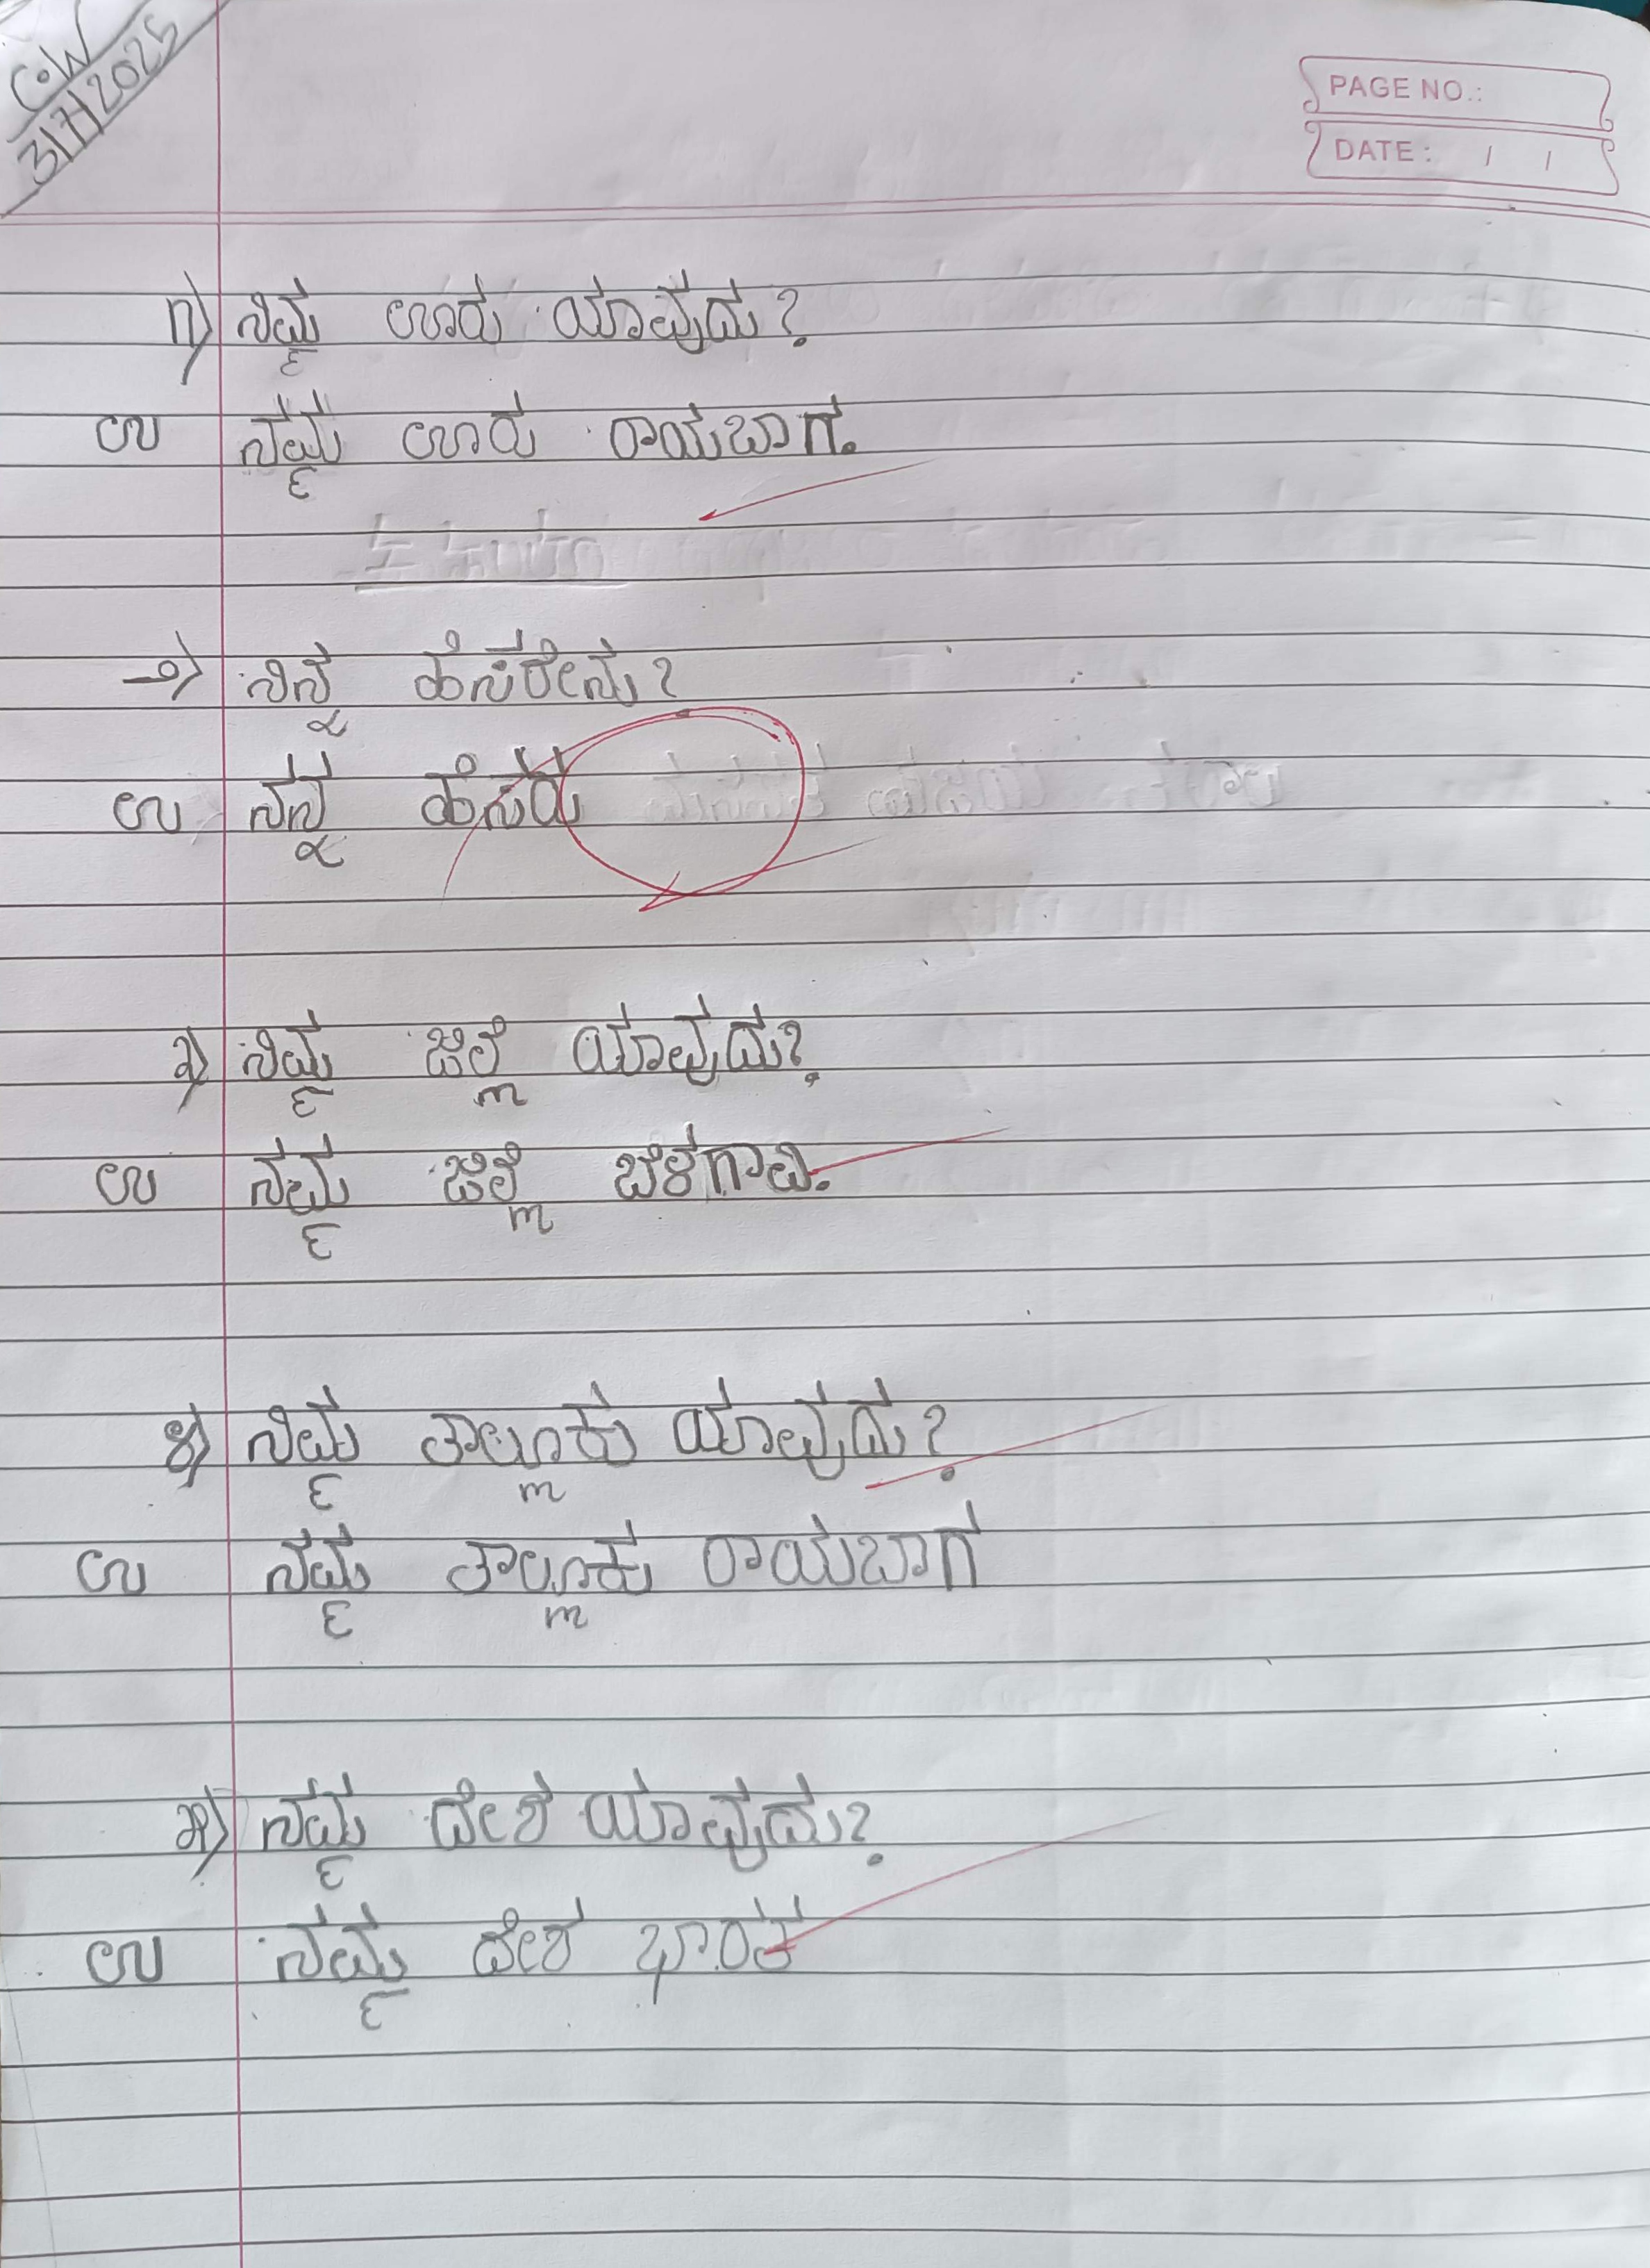 C.W
3/7/2025
PAGE NO.:
DATE: / /
೧) ನಿಮ್ಮ ಊರು ಯಾವುದು?
ಉ ನಮ್ಮ ಊರು ರಾಯಬಾಗ.
೨) ನಿನ್ನ ಹೆಸರೇನು?
ಉ ನನ್ನ ಹೆಸರು
೩) ನಿಮ್ಮ ಜಿಲ್ಲೆ ಯಾವುದು?
ಉ ನಮ್ಮ ಜಿಲ್ಲೆ ಬೆಳಗಾವಿ.
೪) ನಿಮ್ಮ ತಾಲ್ಲೂಕು ಯಾವುದು?
ಉ ನಮ್ಮ ತಾಲ್ಲೂಕು ರಾಯಬಾಗ
೫) ನಮ್ಮ ದೇಶ ಯಾವುದು?
ಉ ನಮ್ಮ ದೇಶ ಭಾರತ